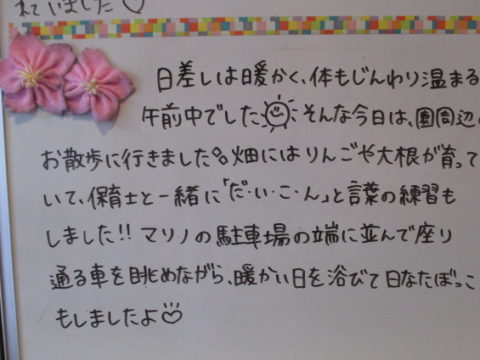 れていました♡
日差しは暖かく、体もじんわり温まる
午前中でした☀そんな今日は、園周辺の
お散歩に行きました♪畑にはりんごや大根が育って
いて、保育士と一緒に「だ・い・こ・ん」と言葉の練習も
しました!!マリノの駐車場の端に並んで座り
通る車を眺めながら、暖かい日を浴びて日なたぼっこ
もしましたよ♡